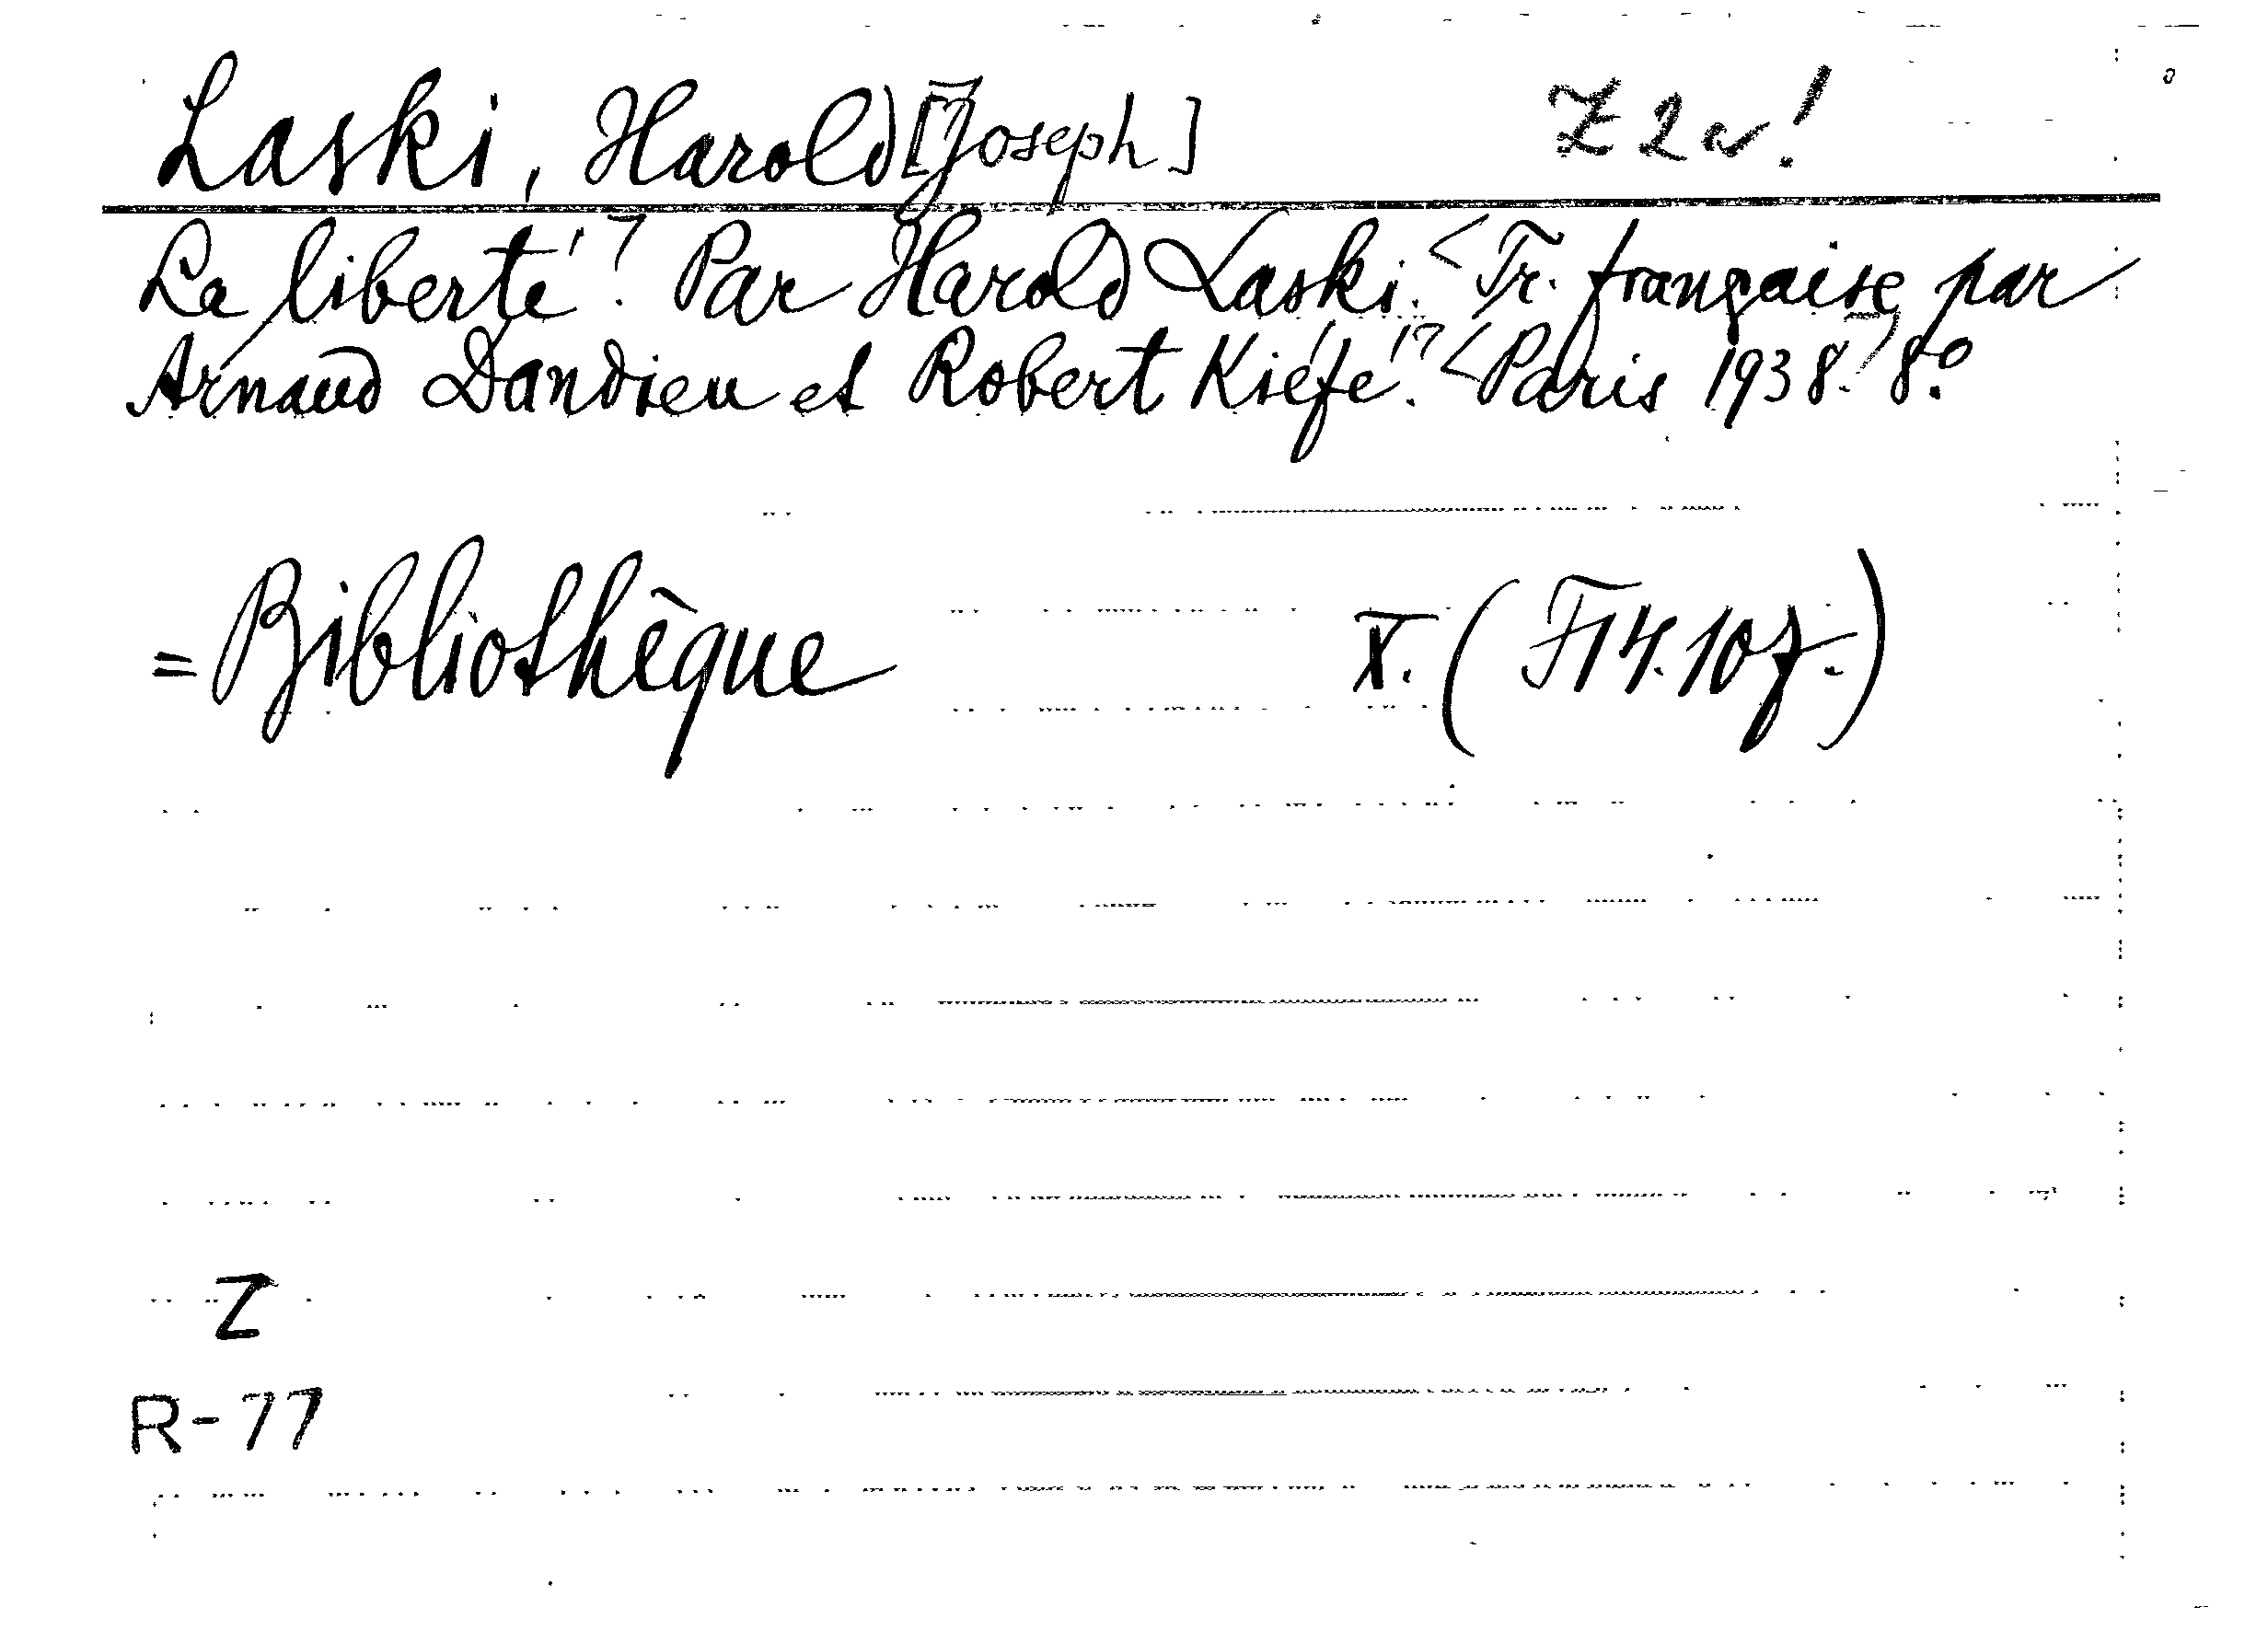 Laski, Harold [Joseph] Z 2 w!
La liberté! Par Harold Laski. <Tr. française par
Arnaud Dandieu et Robert Kiéfé.> <Paris 1938.> 8.º
= Bibliothèque X. (F14.107.)
Z
R-77